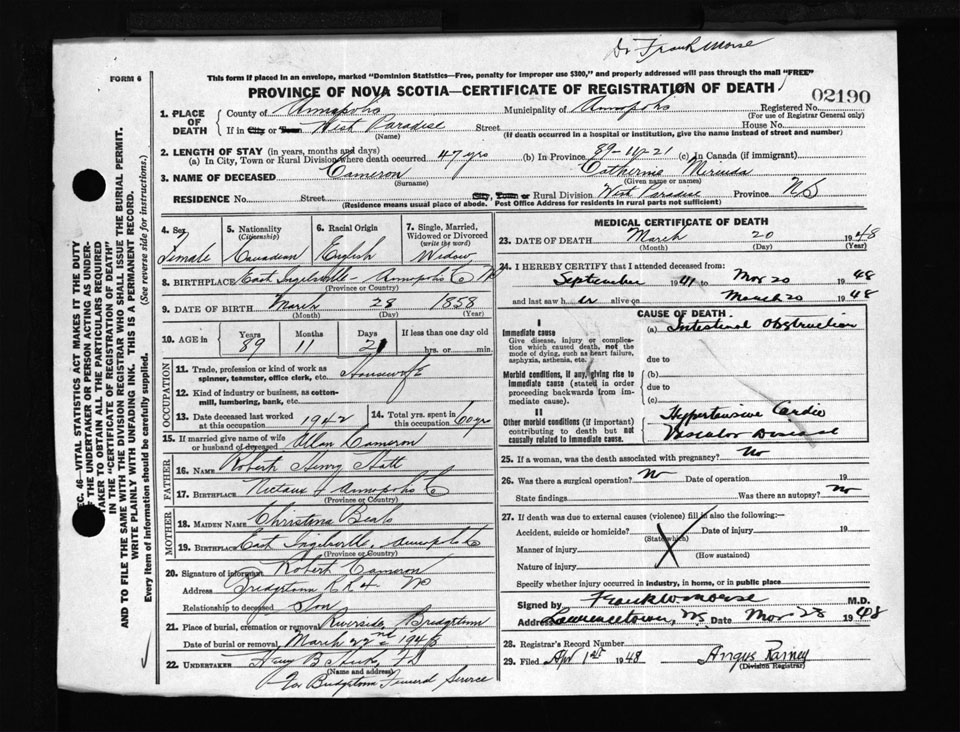 Dr Frank Morse
FORM 6
This form if placed in an envelope, marked "Dominion Statistics—Free, penalty for improper use $300," and properly addressed will pass through the mail "FREE"
PROVINCE OF NOVA SCOTIA—CERTIFICATE OF REGISTRATION OF DEATH
02190
1. PLACE OF DEATH
County of Annapolis Municipality of Annapolis Registered No.
(For use of Registrar General only)
If in City or Town West Paradise Street House No.
(Name) (If death occurred in a hospital or institution, give the name instead of street and number)
2. LENGTH OF STAY (in years, months and days)
(a) In City, Town or Rural Division where death occurred 47 yrs (b) In Province 89-11-21 (c) In Canada (if immigrant)
3. NAME OF DECEASED Cameron Catherine
(Surname) (Given name or names)
RESIDENCE No. Street City, Town or Rural Division West Paradise Province NS
(Residence means usual place of abode. Post Office Address for residents in rural parts not sufficient)
4. Sex Female
5. Nationality (Citizenship) Canadian
6. Racial Origin English
7. Single, Married, Widowed or Divorced (write the word) Widow
8. BIRTHPLACE East Inglisville Annapolis Co
(Province or Country)
9. DATE OF BIRTH March 28 1858
(Month) (Day) (Year)
10. AGE in Years 89 Months 11 Days 21 If less than one day old hrs. or min.
OCCUPATION
11. Trade, profession or kind of work as spinner, teamster, office clerk, etc. Housewife
12. Kind of industry or business, as cotton-mill, lumbering, bank, etc.
13. Date deceased last worked at this occupation 1942
14. Total yrs. spent in this occupation 60 yrs
15. If married give name of wife or husband of deceased Allan Cameron
FATHER
16. NAME Robert Henry
17. BIRTHPLACE Nictaux Annapolis Co
(Province or Country)
MOTHER
18. MAIDEN NAME Christina Beals
19. BIRTHPLACE East Inglisville, Annapolis Co
(Province or Country)
20. Signature of informant Robert Cameron
Address Bridgetown RR4 NS
Relationship to deceased Son
21. Place of burial, cremation or removal Riverside, Bridgetown
Date of burial or removal March 22nd 1948
22. UNDERTAKER
(Name)
For Bridgetown Funeral Service
MEDICAL CERTIFICATE OF DEATH
23. DATE OF DEATH March 20 1948
(Month) (Day) (Year)
24. I HEREBY CERTIFY that I attended deceased from:
September 1941 to Mar 20 1948
and last saw her alive on March 20 1948
CAUSE OF DEATH
I
Immediate cause
Give disease, injury or complication which caused death, not the mode of dying, such as heart failure, asphyxia, asthenia, etc.
(a) Intestinal Obstruction
due to
Morbid conditions, if any, giving rise to immediate cause (stated in order proceeding backwards from immediate cause).
(b)
due to
(c)
II
Other morbid conditions (if important) contributing to death but not causally related to immediate cause.
Hypertensive Cardio
Vascular Disease
25. If a woman, was the death associated with pregnancy? No
26. Was there a surgical operation? No Date of operation 19
State findings Was there an autopsy? No
27. If death was due to external causes (violence) fill in also the following:—
Accident, suicide or homicide? Date of injury 19
(State which)
Manner of injury
(How sustained)
Nature of injury
Specify whether injury occurred in industry, in home, or in public place
Signed by Frank W Morse M.D.
Address Lawrencetown, NS Date Mar 23 1948
28. Registrar's Record Number
29. Filed Apr 1st 1948
(Division Registrar)
SEC. 46—VITAL STATISTICS ACT MAKES IT THE DUTY
OF THE UNDERTAKER OR PERSON ACTING AS UNDER-
TAKER TO OBTAIN ALL THE PARTICULARS REQUIRED
IN THE "CERTIFICATE OF REGISTRATION OF DEATH"
AND TO FILE THE SAME WITH THE DIVISION REGISTRAR WHO SHALL ISSUE THE BURIAL PERMIT.
WRITE PLAINLY WITH UNFADING INK. THIS IS A PERMANENT RECORD.
Every item of information should be carefully supplied. (See reverse side for instructions.)